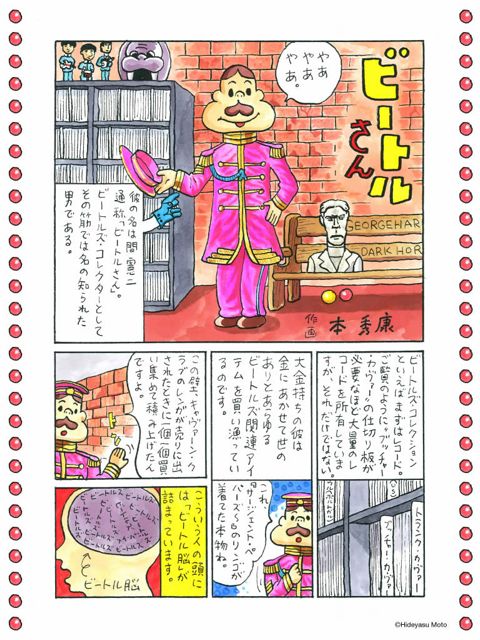 ビートル
さん
やあ
やあ
やあ。
GEORGEHAR
DARK HOR
作
画
本 秀康
彼の名は間 憲二
通称「ビートルさん」。
ビートルズ・コレクターとして
その筋では名の知られた
男である。
ビートルズ・コレクション
といえばまずはレコード。
ご覧のように、"ブッチャー
・カヴァー"の仕切り板が
必要なほど大量のレ
コードを所有していま
すが、それだけではない。
トランク・カヴァー
ブッチャー・カヴァー
大金持ちの彼は
金にあかせて世の
ありとあらゆる
ビートルズ関連アイ
テムを買い漁ってい
るのです。
これ、
「サージェント・ペ
パーズ」でリンゴが
着てた本物ね。
この壁、キャヴァーン・ク
ラブのレンガが売りに出
されたときに一個一個買
い集めて積み上げたん
ですよ。
こういう人の頭に
は「ビートル脳」が
詰まっています。
ビートルズ
ビートルズ
ビートルズ
ビートル脳
©Hideyasu Moto